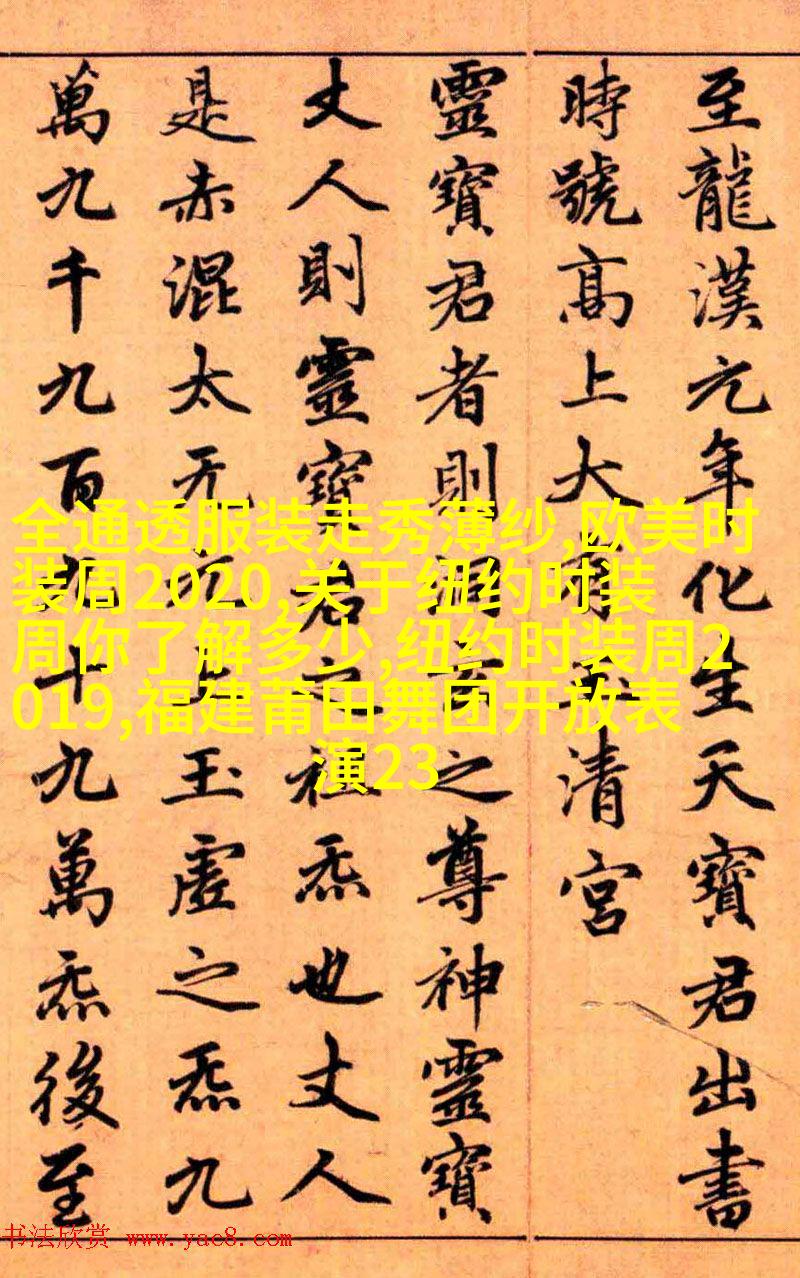 至龍漢元年化生天寶君出書
時號高上大有玉清宮
靈寶君者則洞玄之尊神靈寶
丈人則靈寶君之祖炁也丈人
是赤混太无元上玉虛之炁九
萬九千九百九十九萬炁後至
全通透服装走秀薄纱,欧美时
装周2020,关于纽约时装
周你了解多少,纽约时装周2
019,福建莆田舞团开放表
演23
书法欣赏 www.yac8.com